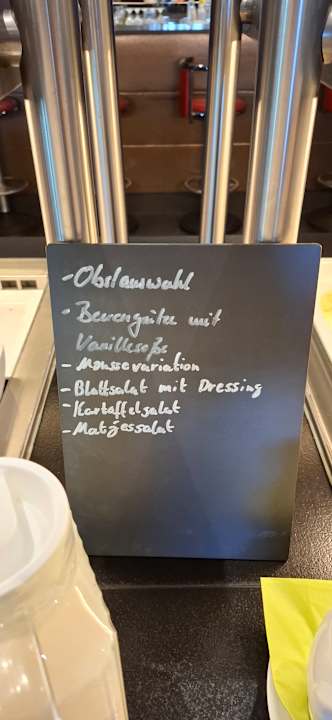 - Obstauswahl
- Beerengrütze mit
Vanillesoße
- Moussevariation
- Blattsalat mit Dressing
- Kartoffelsalat
- Matjessalat